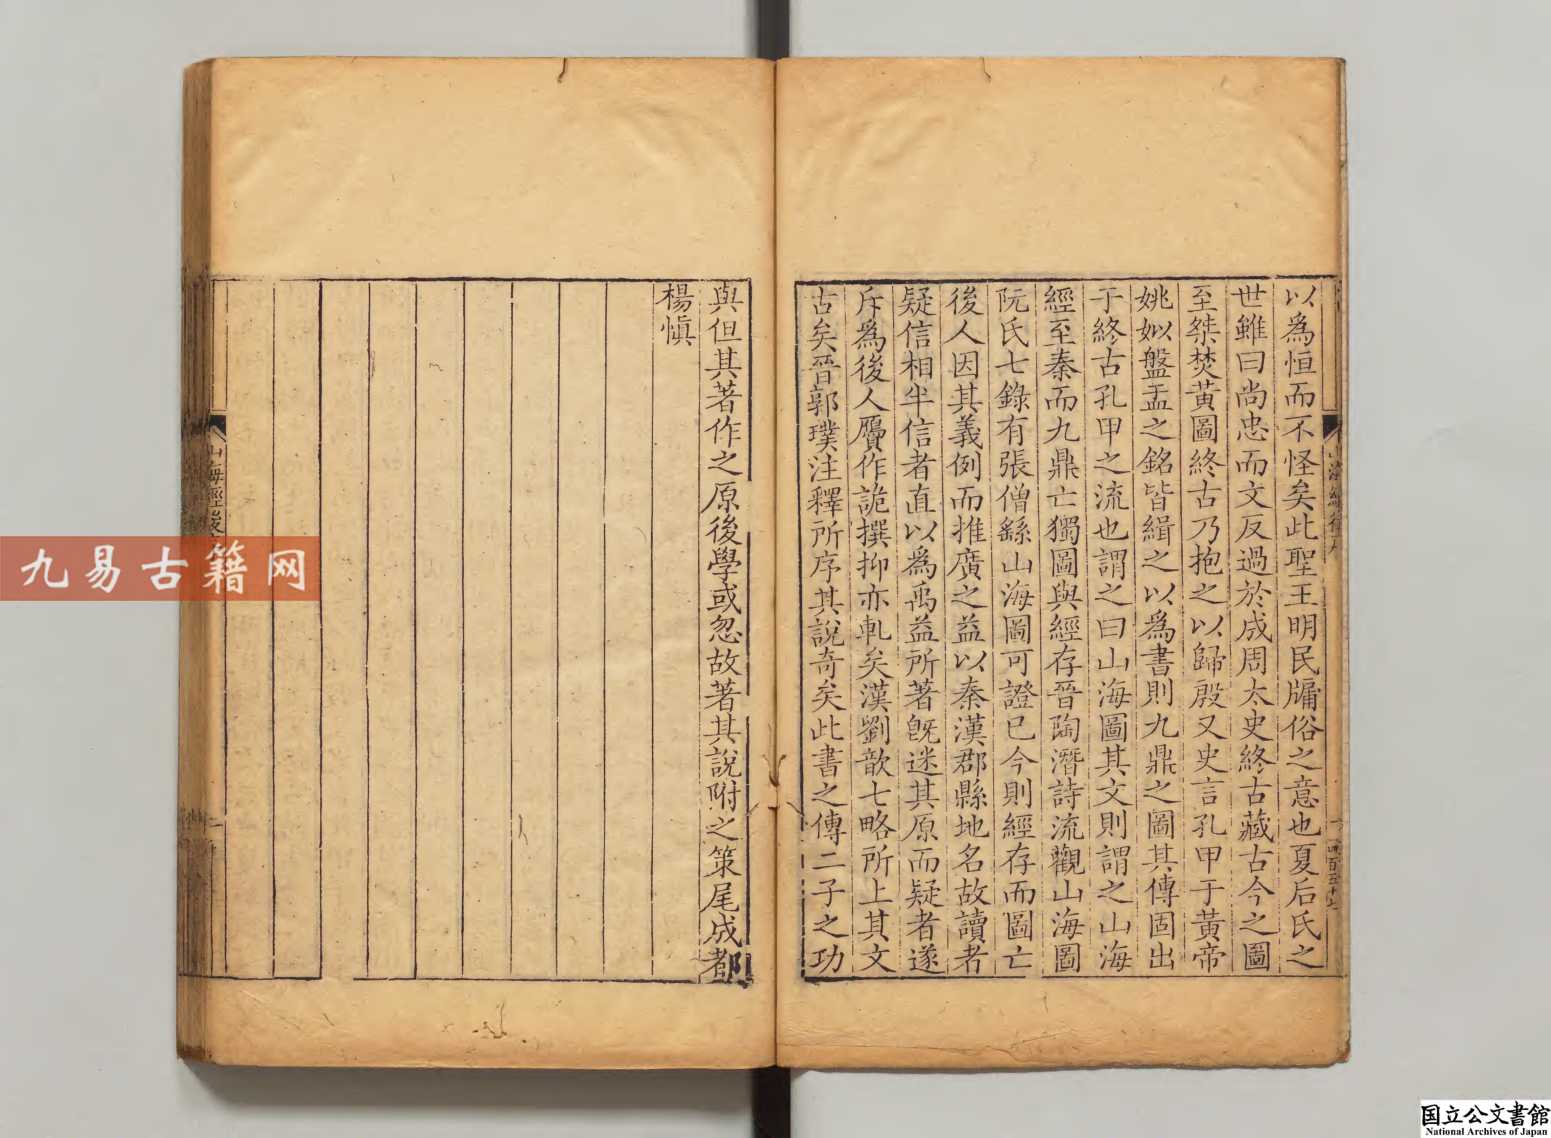 以為恒而不怪矣此聖王明民牖俗之意也夏后氏之
世雖曰尚忠而文反過於成周太史終古藏古今之圖
至桀焚黃圖終古乃抱之以歸殷又史言孔甲于黃帝
姚姒盤盂之銘皆緝之以為書則九鼎之圖其傳固出
于終古孔甲之流也謂之曰山海圖其文則謂之山海
經至秦而九鼎亡獨圖與經存晉陶潛詩流觀山海圖
阮氏七錄有張僧繇山海圖可證已今則經存而圖亡
後人因其義例而推廣之益以秦漢郡縣地名故讀者
疑信相半信者直以為禹益所著既迷其原而疑者遂
斥為後人贋作詭撰抑亦軋矣漢劉歆七略所上其文
古矣晉郭璞注釋所序其說奇矣此書之傳二子之功
與但其著作之原後學或忽故著其說附之策尾成都
楊慎
山海經後
九易古籍网
国立公文書館
National Archives of Japan